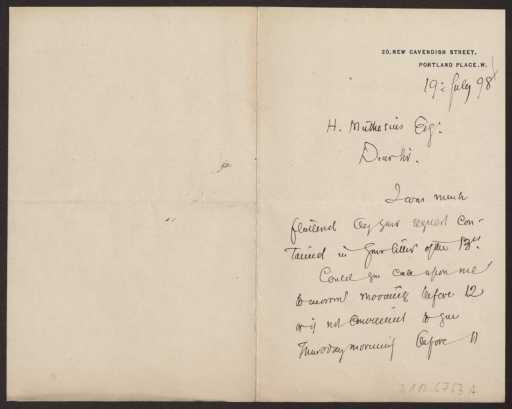 20, NEW CAVENDISH STREET,
PORTLAND PLACE. W.
19: July 98
H. Muthesius Esq:
Dear Sir.
I was much
flattered by your request con-
tained in your letter of the 13th.
Could you call upon me
tomorrow morning before 12
or if not convenient to you
Thursday morning before 11